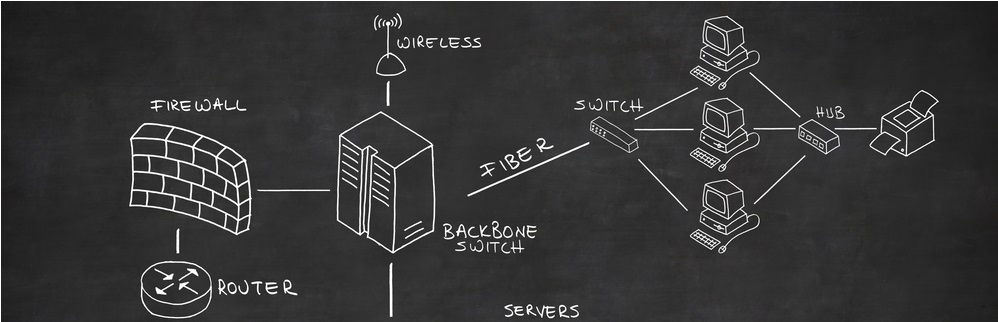 WIRELESS
FIREWALL
SWITCH
HUB
FIBER
BACKBONE
SWITCH
ROUTER
SERVERS